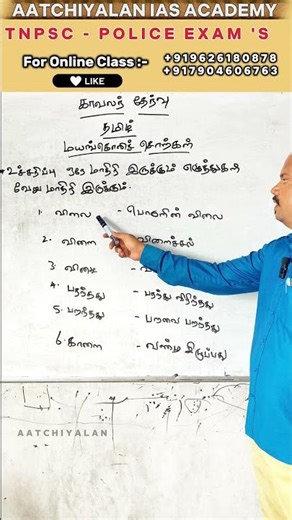 AATCHIYALAN IAS ACADEMY
TNPSC - POLICE EXAM 'S
For Online Class :- +919626180878
LIKE +917904606763
காவலர் தேர்வு
தமிழ்
மயங்கொலிச் சொற்கள்
* உச்சரிப்பு ஒரே மாதிரி இருக்கும் எழுத்துகள்
வேறு மாதிரி இருக்கும்.
1. விலை - பொருளின் விலை
2. விளை விளைச்சல்
3. விழை
4. பரந்தது - பரந்து விரிந்தது
5. பறந்தது - பறவை பறந்தது
6. காளை -
AATCHIYALAN